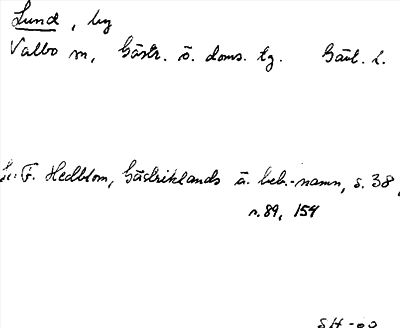 Lund, by
Valbo sn, Gästr. ö. doms. tg. Gävl. l.
Li: F. Hedblom, Gästriklands ä. beb.-namn, s. 38,
n. 89, 154
SH-